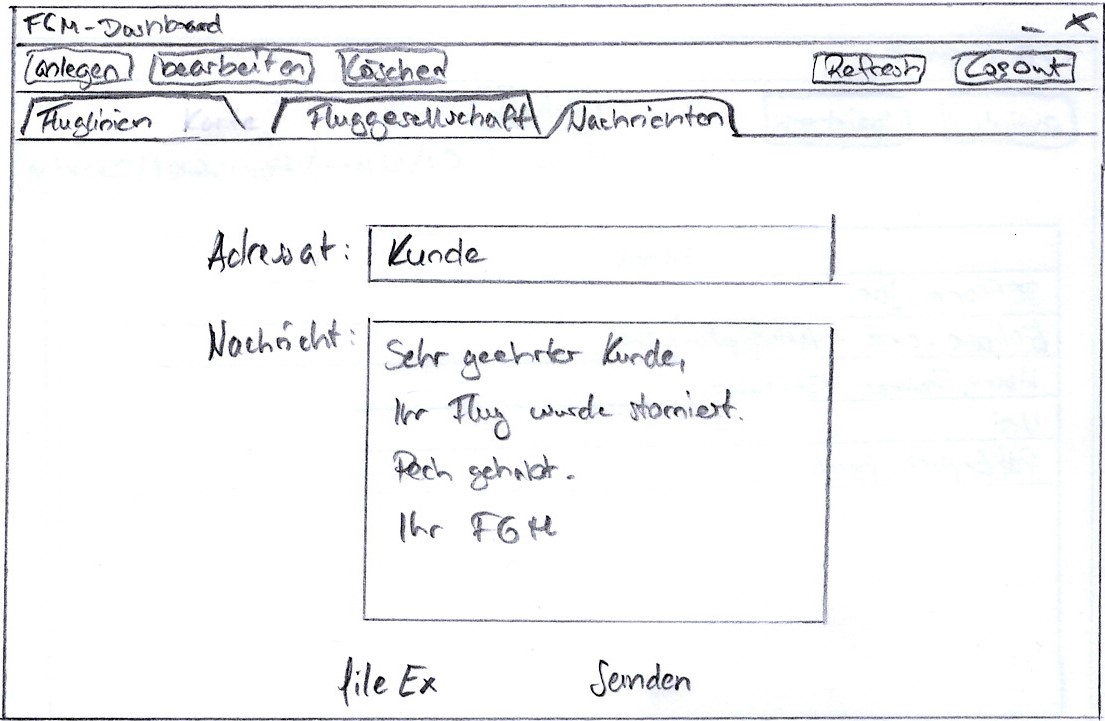 FCM-Dashboard
anlegen bearbeiten Löschen Refresh Logout
Fluglinien Fluggesellschaft Nachrichten
Adressat: Kunde
Nachricht:
Sehr geehrter Kunde,
Ihr Flug wurde storniert.
Pech gehabt.
Ihr FGM
file Ex Senden